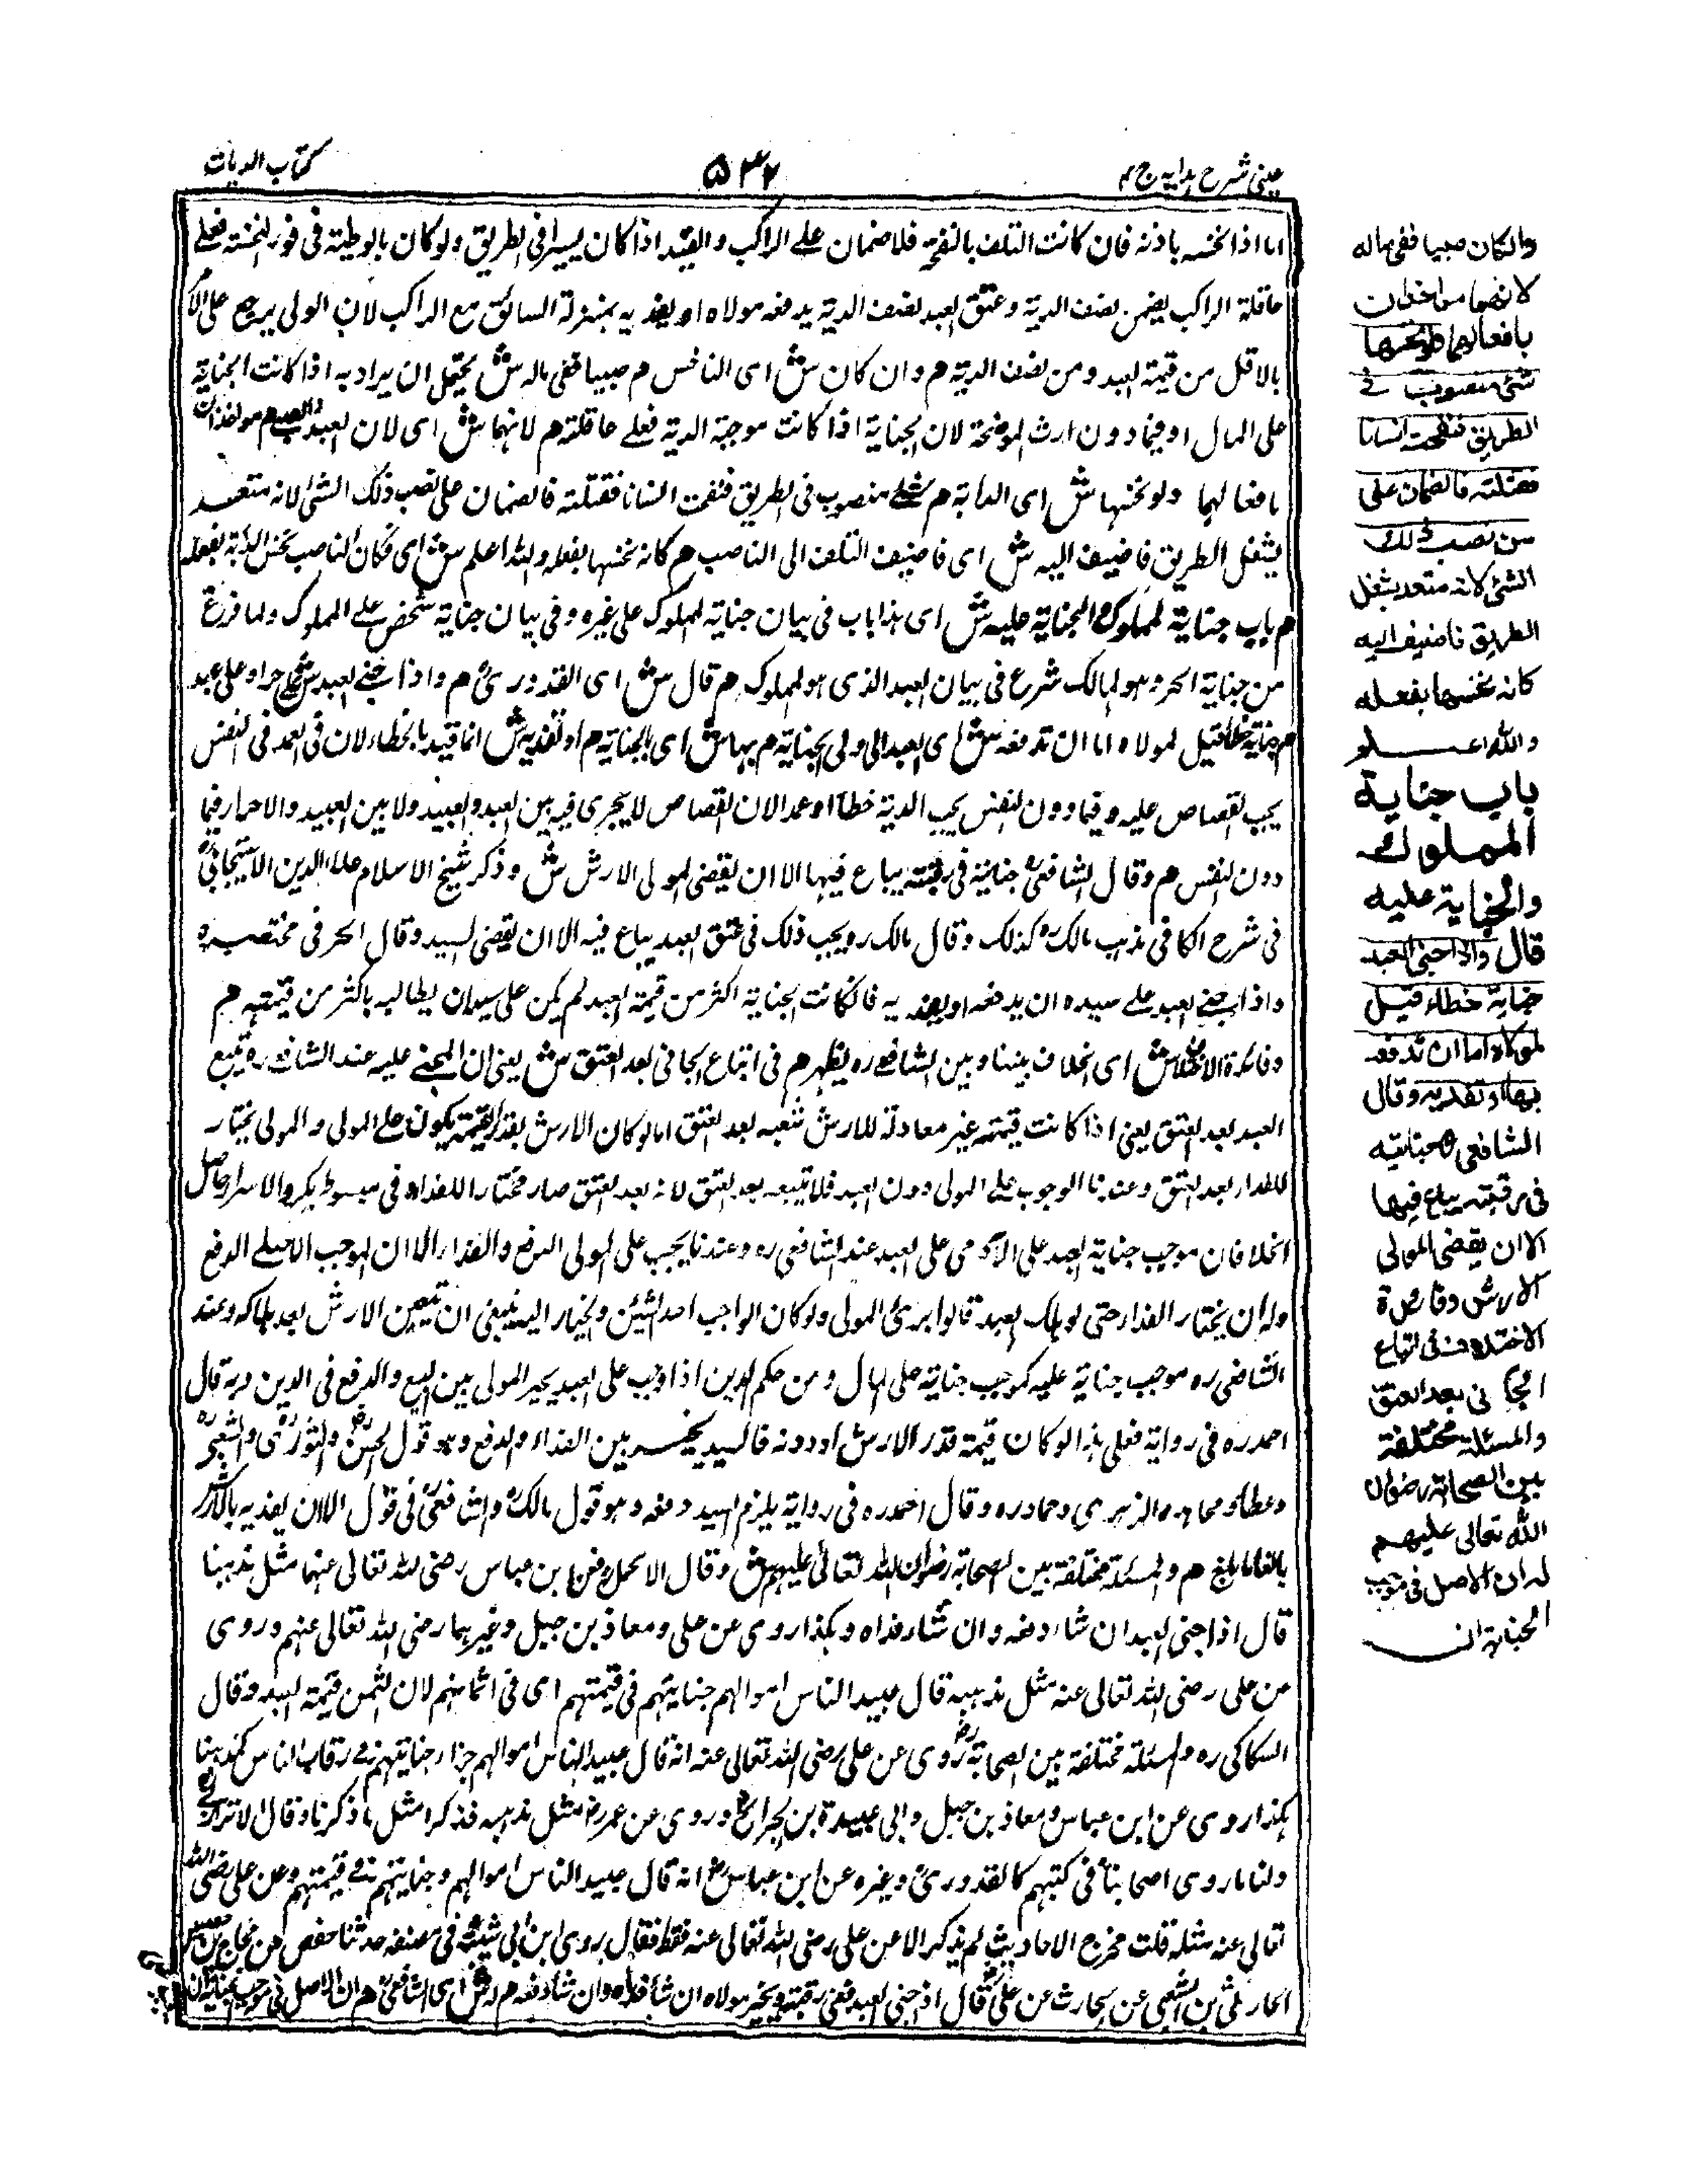 عینی شرح ہدایہ ج ۴
۵۳۷
کتاب الدیات
اما اذا نخسه باذنه فان كانت التلف بالنفحة فلا ضمان على الراكب والقيد اذا كان يسير فى الطريق ولو كان بالوطية فى فور النخسة فعلى
عاقلة الراكب يضمن نصف الدية وعتق العبد نصف الدية يدفعه مولاه او يفديه بمنزلة السائق مع الراكب لان المولى يرجع على الآمر
بالاقل من قيمة العبد ومن نصف الدية م وان كان ش اى الناخس م صبيا ففى ماله ش يحتمل ان يراد به اذا كانت الجناية
على المال او فيما دون ارش الموضحة لان الجناية اذا كانت موجبة الدية فعلى عاقلته م لانهما ش اى لان العبد والصبى م مواخذان
بافعالهما ولو نخسها ش اى الدابة م شئ منصوب فى الطريق فنفحت انسانا فقتلته فالضمان على نصب ذلك الشئ لانه متعد
بشغل الطريق فاضيف اليه ش اى فاضيف التلف الى الناصب م كانه نخسها بفعله والله اعلم ش اى فكان الناصب نخس الدابة بفعله
م باب جناية المملوك والجناية عليه ش اى هذا باب فى بيان جناية المملوك على غيره وفى بيان جناية شخص على المملوك ولما فرغ
من جناية الحر وهو المالك شرع فى بيان العبد الذى هو المملوك م قال ش اى القدورى م واذا جنى العبد ش على حر او على عبد
م جناية خطأ قيل لمولاه اما ان تدفعه ش اى العبد الى ولى الجناية م بها ش اى بالجناية م او تفديه ش انما قيد بالخطاء لان فى العمد فى النفس
يجب القصاص عليه وفيما دون النفس يجب الدية خطأ او عمدا لان القصاص لا يجرى فيه بين العبد والعبيد ولا بين العبيد والاحرار فيما
دون النفس م وقال الشافعى جنايته فى رقبته يباع فيها الا ان يقضى المولى الارش ش وذكر شيخ الاسلام علاء الدين الاسبيجابى
فى شرح الكافى مذهب مالك كذلك وقال مالك ره ويجب ذلك فى عتق العبد يباع فيه الا ان يقضى السيد وقال الحرفى مختصره
واذا جنى العبد على سيده ان يدفعه او يفديه فان كانت الجناية اكثر من قيمة العبد لم يكن على سيد ان يطالبه باكثر من قيمته م
وفائدة الاختلاف ش اى الخلاف بيننا وبين الشافعى ره يظهر م فى اتباع الجانى بعد العتق ش يعنى ان المجنى عليه عند الشافعى ره يتبع
العبد بعد العتق يعنى اذا كانت قيمته غير معادلة للارش تتبعه بعد العتق اما لو كان الارش بقدر القيمة يكون على المولى والمولى يختار
للفداء بعد العتق وعندنا الوجوب على المولى دون العبد فلا تتبعه بعد العتق لانه بعد العتق صار مختارا للفداء وفى مبسوط بكر والاسرار حاصل
الخلاف ان موجب جناية العبد على الآدمى على العبد عند الشافعى ره وعندنا يجب على المولى الدفع والفداء الا ان الموجب الاصلى الدفع
وله ان يختار الفداء حتى لو هلك العبد قالوا برئ المولى ولو كان الواجب احد الشيئين والخيار اليه ينبغى ان يتعين الارش بعد هلاكه وعند
الشافعى ره موجب جناية عليه كموجب جناية على المال ومن حكم الدين اذا وجب على العبد يخير المولى بين البيع والدفع فى الدين وبه قال
احمد ره فى رواية فعلى هذا لو كان قيمة قدر الارش او دونه فالسيد يخير بين الفداء والدفع وهو قول الحسن والثورى والشعبى
وعطاء ومجاهد والزهرى وحماد ره وقال احمد ره فى رواية يلزم السيد دفعه وهو قول مالك والشافعى فى قول الا ان يفديه بالارش
بالغا ما بلغ م والمسئلة مختلفة بين الصحابة رضوان الله تعالى عليهم ش وقال الاكمل فعن ابن عباس رضى الله تعالى عنهما مثل مذهبنا
قال اذا جنى العبد ان شاء دفعه وان شاء فداه وهكذا روى عن على ومعاذ بن جبل وغيرهما رضى الله تعالى عنهم وروى
عن على رضى الله تعالى عنه مثل مذهبه قال عبيد الناس اموالهم جنايتهم فى قيمتهم اى فى اثمانهم لان الثمن قيمة العبد وقال
السكاكى ره والمسئلة مختلفة بين الصحابة روى عن على رضى الله تعالى عنه انه قال عبيد الناس اموالهم جزاء جنايتهم فى رقاب الناس كمذهبنا
هكذا روى عن ابن عباس ومعاذ بن جبل وابى عبيدة بن الجراح وروى عن عمر مثل مذهبه فذكر امثل ما ذكرنا وقال الاترازى
ولنا ما روى اصحابنا فى كتبهم كالقدورى وغيره عن ابن عباس انه قال عبيد الناس اموالهم وجنايتهم فى قيمتهم وعن على رضى الله
تعالى عنه مثله قلت مخرج الاحاديث لم يذكر الا عن على رضى الله تعالى عنه فقط فقال روى ابن ابى شيبة فى مصنفه حدثنا حفص عن حجاج عن حصين
الحارثى عن الشعبى عن الحارث عن على قال اذا جنى العبد ففى رقبته ويخير مولاه ان شاء فداه وان شاء دفعه م له ش اى الشافعى م ان الاصل فى موجب الجناية ان
وانكان صبيا ففى ماله
لانهما مواخذان
بافعالهما ولو نخسها
شئ منصوب فى
الطريق فنفحت انسانا
فقتلته فالضمان على
من نصب ذلك
الشئ لانه متعد بشغل
الطريق فاضيف اليه
كانه نخسها بفعله
والله اعلم
باب جناية
المملوك
والجناية عليه
قال واذا جنى العبد
جناية خطاء قيل
لمولاه اما ان تدفعه
بها او تفديه وقال
الشافعى جنايته
فى رقبته يباع فيها
الا ان يقضى المولى
الارش وفائدة
الاختلاف فى اتباع
الجانى بعد العتق
والمسئلة مختلفة
بين الصحابة رضوان
الله تعالى عليهم
له ان الاصل فى موجب
الجناية ان